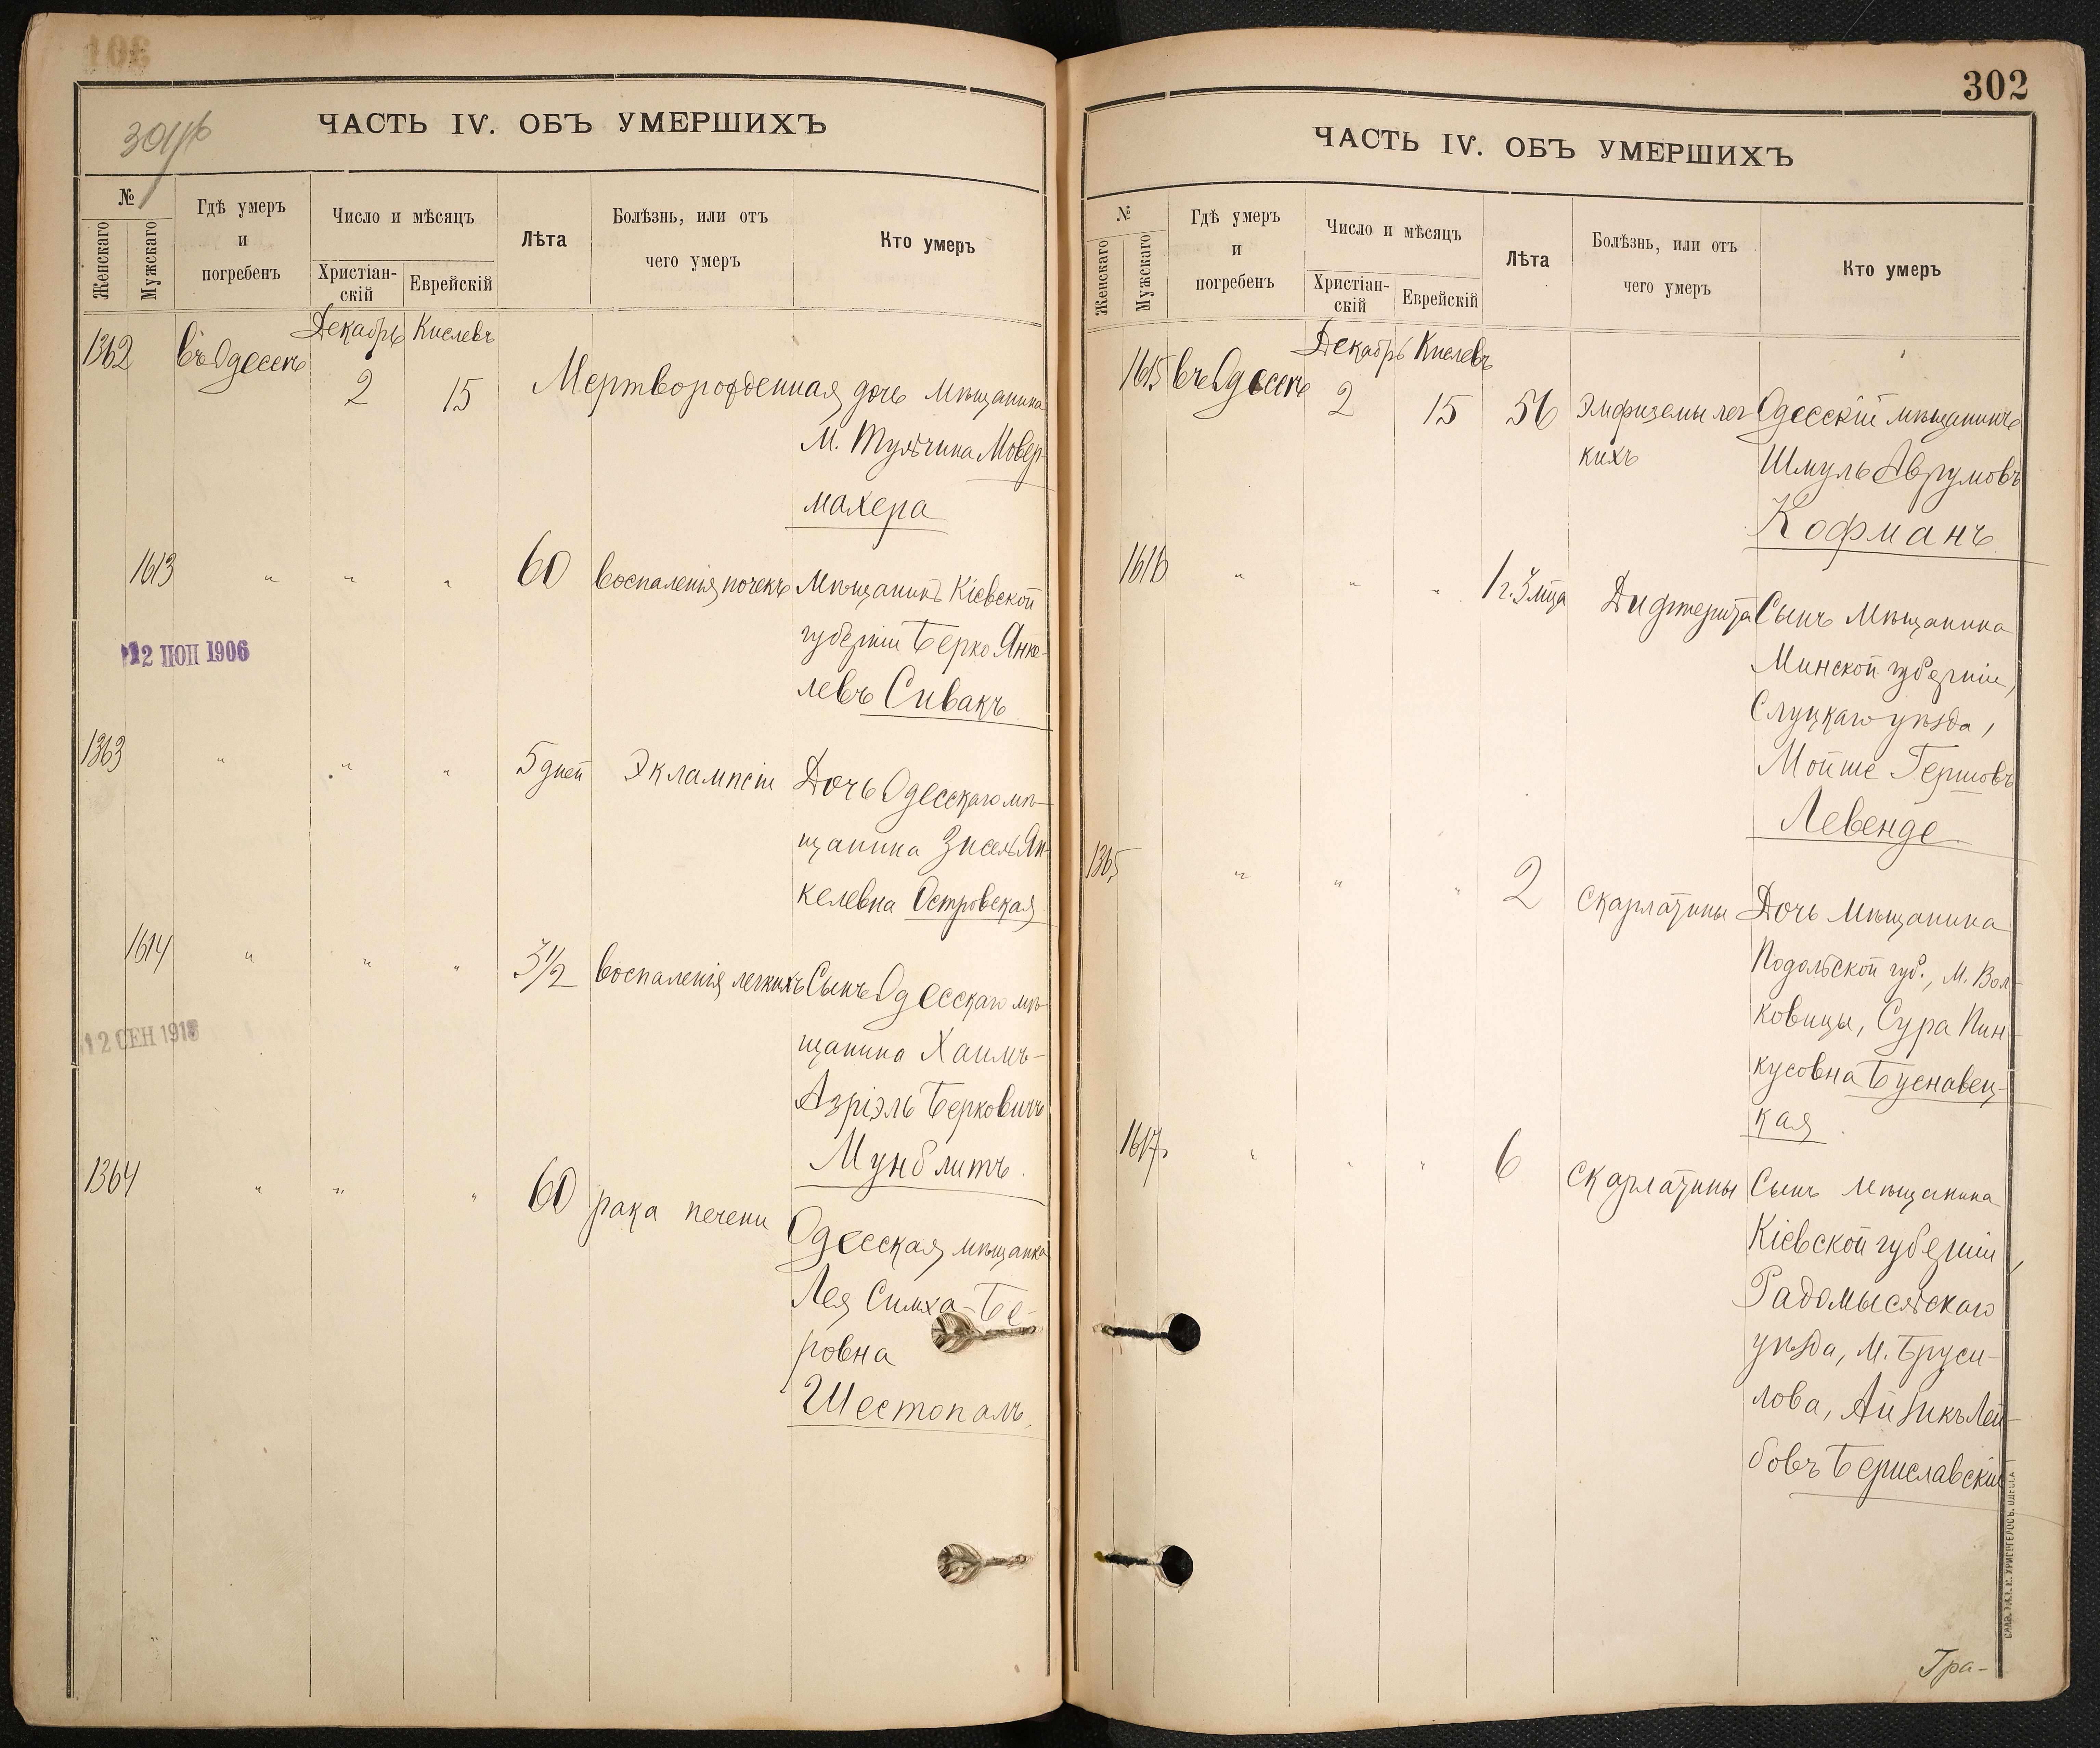 301
ЧАСТЬ IV. ОБЪ УМЕРШИХЪ
№
Женскаго
Мужскаго
Гдѣ умеръ
и
погребенъ
Число и мѣсяцъ
Христіан-
скій
Еврейскій
Лѣта
Болѣзнь, или отъ
чего умеръ
Кто умеръ
Декабрь Кислевъ
1362 въ Одессѣ 2 15 Мертворожденная дочь мѣщанина
М. Тульчина Мовер-
махера
1613 " " " 60 воспаленія почекъ Мѣщанинъ Кіевской
губерніи Берко Янке-
левъ Сивакъ
12 ІЮН 1906
1363 " " " 5 дней Эклампсіи Дочь Одесскаго мѣ-
щанина Зисель Ян-
келевна Островская
1614 " " " 3½ воспаленія легкихъ Сынъ Одесскаго мѣ-
щанина Хаимъ-
Азріэль Берковичъ
Мунблитъ
12 СЕН 1913
1364 " " " 60 рака печени Одесская мѣщанка
Лея Симха-Бе-
ровна
Шестопалъ
302
ЧАСТЬ IV. ОБЪ УМЕРШИХЪ
№
Женскаго
Мужскаго
Гдѣ умеръ
и
погребенъ
Число и мѣсяцъ
Христіан-
скій
Еврейскій
Лѣта
Болѣзнь, или отъ
чего умеръ
Кто умеръ
Декабрь Кислевъ
1615 въ Одессѣ 2 15 56 Эмфиземы лег- Одесскій мѣщанинъ
кихъ Шмуль Аврумовъ
Кофманъ
1616 " " " 1 г. 3 мца Дифтерита Сынъ мѣщанина
Минской губерніи,
Слуцкаго уѣзда,
Мойше Гершовъ
Левенде
1365 " " " 2 скарлатины Дочь мѣщанина
Подольской губ., М. Вол-
ковицы, Сура Пин-
кусовна Буснавец-
кая
1617 " " " 6 скарлатины Сынъ мѣщанина
Кіевской губерніи,
Радомысльскаго
уѣзда, М. Бруси-
лова, Айзикъ Лей-
бовъ Бериславскій
Гра-